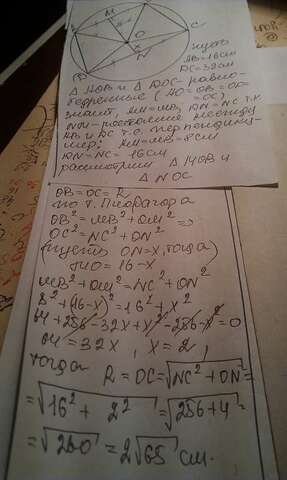 M
B
C
O
x
N
D
пусть
AB=16см
DC=32см
△ AOB и △ DOC - равно-
бедренные (AO=OB=OC=
=OD)
значит, AM=MB, DN=NC т.к.
NM - расстояние между
AB и DC т.е. перпендику-
ляр; AM=MB=8см
DN=NC= 16см
рассмотрим △ MOB и
△ NOC
OB=OC=R
по т. Пифагора
OB²=MB²+OM² =>
OC²=NC²+ON²
(пусть ON=x, тогда)
MO=16-x
MB²+OM²=NC²+ON²
8²+(16-x)²=16²+x²
64+256-32x+x²-256-x²=0
64=32x, x=2,
тогда
R=OC=√NC²+ON²=
=√16²+2²=√256+4=
=√260=2√65 см.